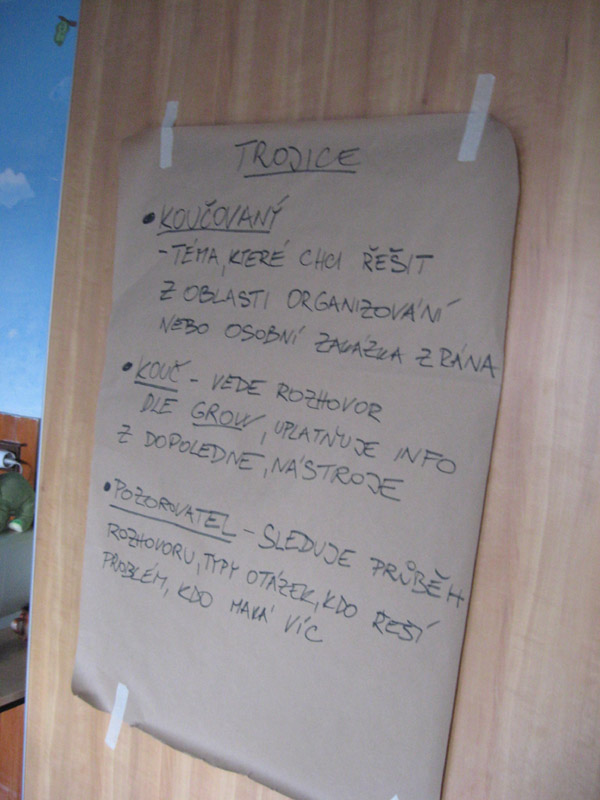 TROJICE
• KOUČOVANÝ
- TÉMA, KTERÉ CHCI ŘEŠIT
Z OBLASTI ORGANIZOVÁNÍ
NEBO OSOBNÍ ZAKÁZKA Z RÁNA
• KOUČ - VEDE ROZHOVOR
DLE GROW, UPLATŇUJE INFO
Z DOPOLEDNE, NÁSTROJE
• POZOROVATEL - SLEDUJE PRŮBĚH
ROZHOVORU, TYPY OTÁZEK, KDO ŘEŠÍ
PROBLÉM, KDO MAKÁ VÍC